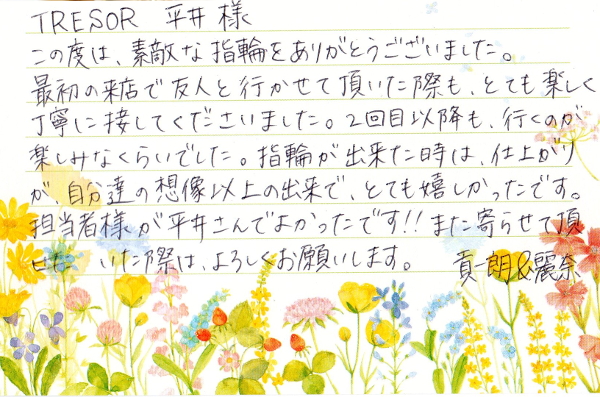 TRESOR 平井 様
この度は、素敵な指輪をありがとうございました。
最初の来店で友人と行かせて頂いた際も、とても楽しく
丁寧に接してくださいました。2回目以降も、行くのが
楽しみなくらいでした。指輪が出来た時は、仕上がり
が自分達の想像以上の出来で、とても嬉しかったです。
担当者様が平井さんでよかったです!! また寄らせて頂
いた際は、よろしくお願いします。 貢一朗&麗奈